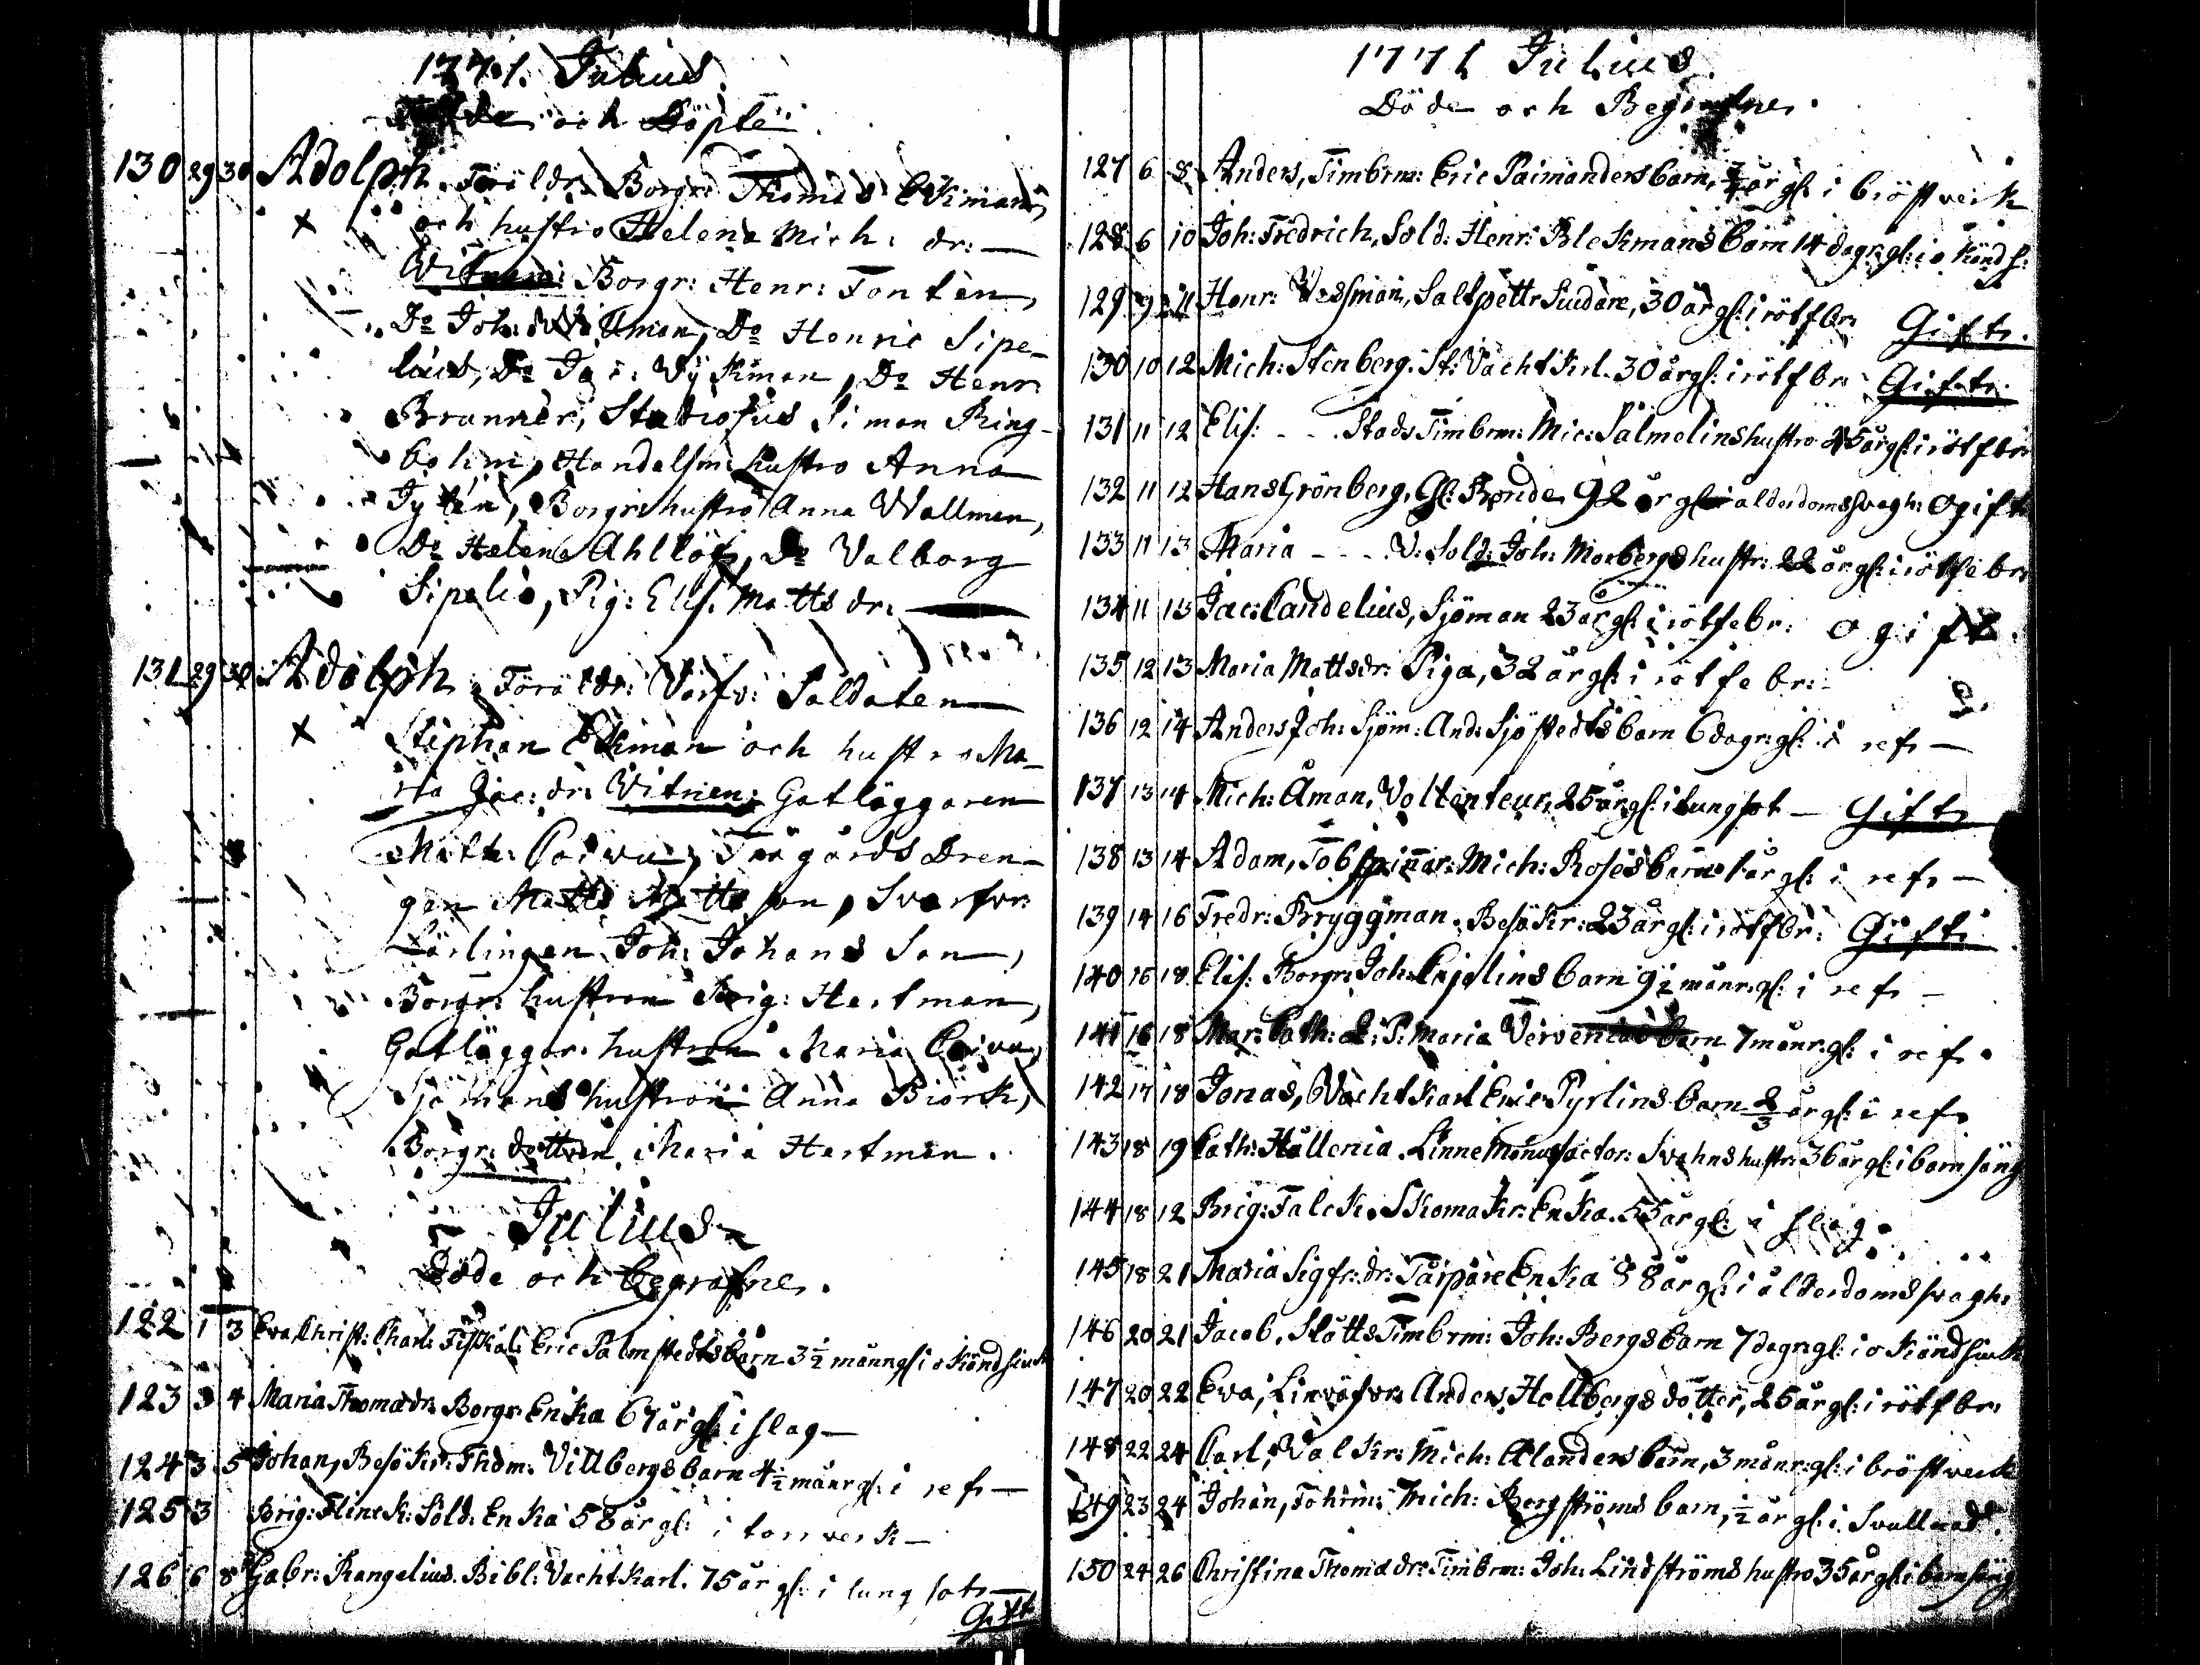 1771. Julius
Födde och Döpte
130 29 30 Adolph. Föräldr: Borgr: Thomas Ekman
och hustro Helena Mich: dr:
Witnen: Borgr: Henr: Fontèn,
Do Joh: Wikman, Do Henric Sipe-
lius, Do Jac: Wykman, Do Henr:
Brunner, Studiosus Simon Ring-
bohm, Handelsm: hustro Anna
Tytèn, Borgr: hustro Anna Wallmen,
Do Helena Ahllöf, Do Valborg
Sipelia, Pig: Elis: Matts dr:
131 29 30 Adolph. Föräldr: Värfv: Soldaten
Stephan Ekman och hustro Ma-
ria Jac: dr: Witnen: Gatläggaren
Matth: Paiva, Trägårds Dren-
gen Matts Mattsson, Svarfvr:
Lärlingen Joh: Johans Son,
Borgr: hustron Brig: Hartman,
Gatläggar: hustron Maria Paiva,
Sjömans hustron Anna Biörk,
Borgr: dottren Maria Hartman.
Julius
Döde och begrafne.
122 1 3 Eva Christ: Charl: Fiskal: Eric Palmstedts barn 3 1/2 mån: gl: i okänd siuk
123 3 4 Maria Thomæ dr: Borgr: Enka 67 år gl: i slag
124 3 5 Johan, Besökr: Thom: Villbergs barn 4 1/2 månr gl: i ref:
125 3 Brig: Flinck: Sold: Enka 58 år gl: i torrverk
126 6 8 Gabr: Rangelius. Bibl: Vachtkarl. 75 år gl: i lungsot
Gift
1771 Julius.
Döde och Begrafne.
127 6 8 Anders, Timbrm: Eric Paimanders barn, 3/4 år gl: i bröstverk
128 6 10 Joh: Fredrich, Sold: Henr: Blekmans barn 14 dagr: gl: i okänd s:
129 9 11 Henr: Vessman, Saltpettr Siudare, 30 år gl: i rötfbr: Gift:
130 10 12 Mich: Stenberg. St: Vachtkrl. 30 år gl: i rötfbr: Gift:
131 11 12 Elis: - - . Stads Timbrm: Mic: Salmelins hustro 45 år gl: i rötfbr:
132 11 12 Hans Grönberg, Gl: Bonde 92 år gl: i ålderdomssvagh: ogift
133 11 13 Maria - - - V: Sold: Joh: Morbergs hustr: 22 år gl: i rötfebr:
134 11 13 Jac: Candelius, Sjöman 23 år gl: i rötfebr: ogift.
135 12 13 Maria Mattsdr: Piga, 32 år gl: i rötfebr: O.
136 12 14 Anders Joh: Sjöm: And: Sjöstedts barn 6 dagr: gl: i ref:
137 13 14 Mich: Åman, Voltenteur, 25 år gl: i lungsot Gift:
138 13 14 Adam, Tobspinnar: Mich: Roses barn 1 år gl: i ref:
139 14 16 Fredr: Bryggman. Besökr: 23 år gl: i rötfbr: Gift:
140 16 18 Elis: Borgr: Joh: barn 9 1/2 månr. gl: i ref:
141 16 18 Mar: Cath: L: P: Maria barn 7 månr. gl: i ref:
142 17 18 Jonas, Vachtkarl Eric Pyrlins barn 2/3 år gl: i ref:
143 18 19 Cath: Hållenia. Linne Manufactor: Svahns hustr: 36 år gl: i barnsäng
144 18 12 Brig: Falck. Skomakr: Enka. 55 år gl: i slag.
145 18 21 Maria Sigfr: dr: Tårpare Enka 88 år gl: i ålderdomssvagh:
146 20 21 Jacob, Slåtts Timbrm: Joh: Bergs barn 7 dagr: gl: i okänd siuk
147 20 22 Eva, Linväfvr: Anders Hellbergs dotter, 25 år gl: i rötfbr:
148 22 24 Carl, Valkr: Mich: Alanders barn, 3 månr: gl: i bröstverk
149 23 24 Johan, Mich: Bergströms barn, 1/2 år gl: i Svullnad.
150 24 26 Christina Thomædr: Timbrm: Joh: Lindströms hustro 35 år gl: i barnsäng